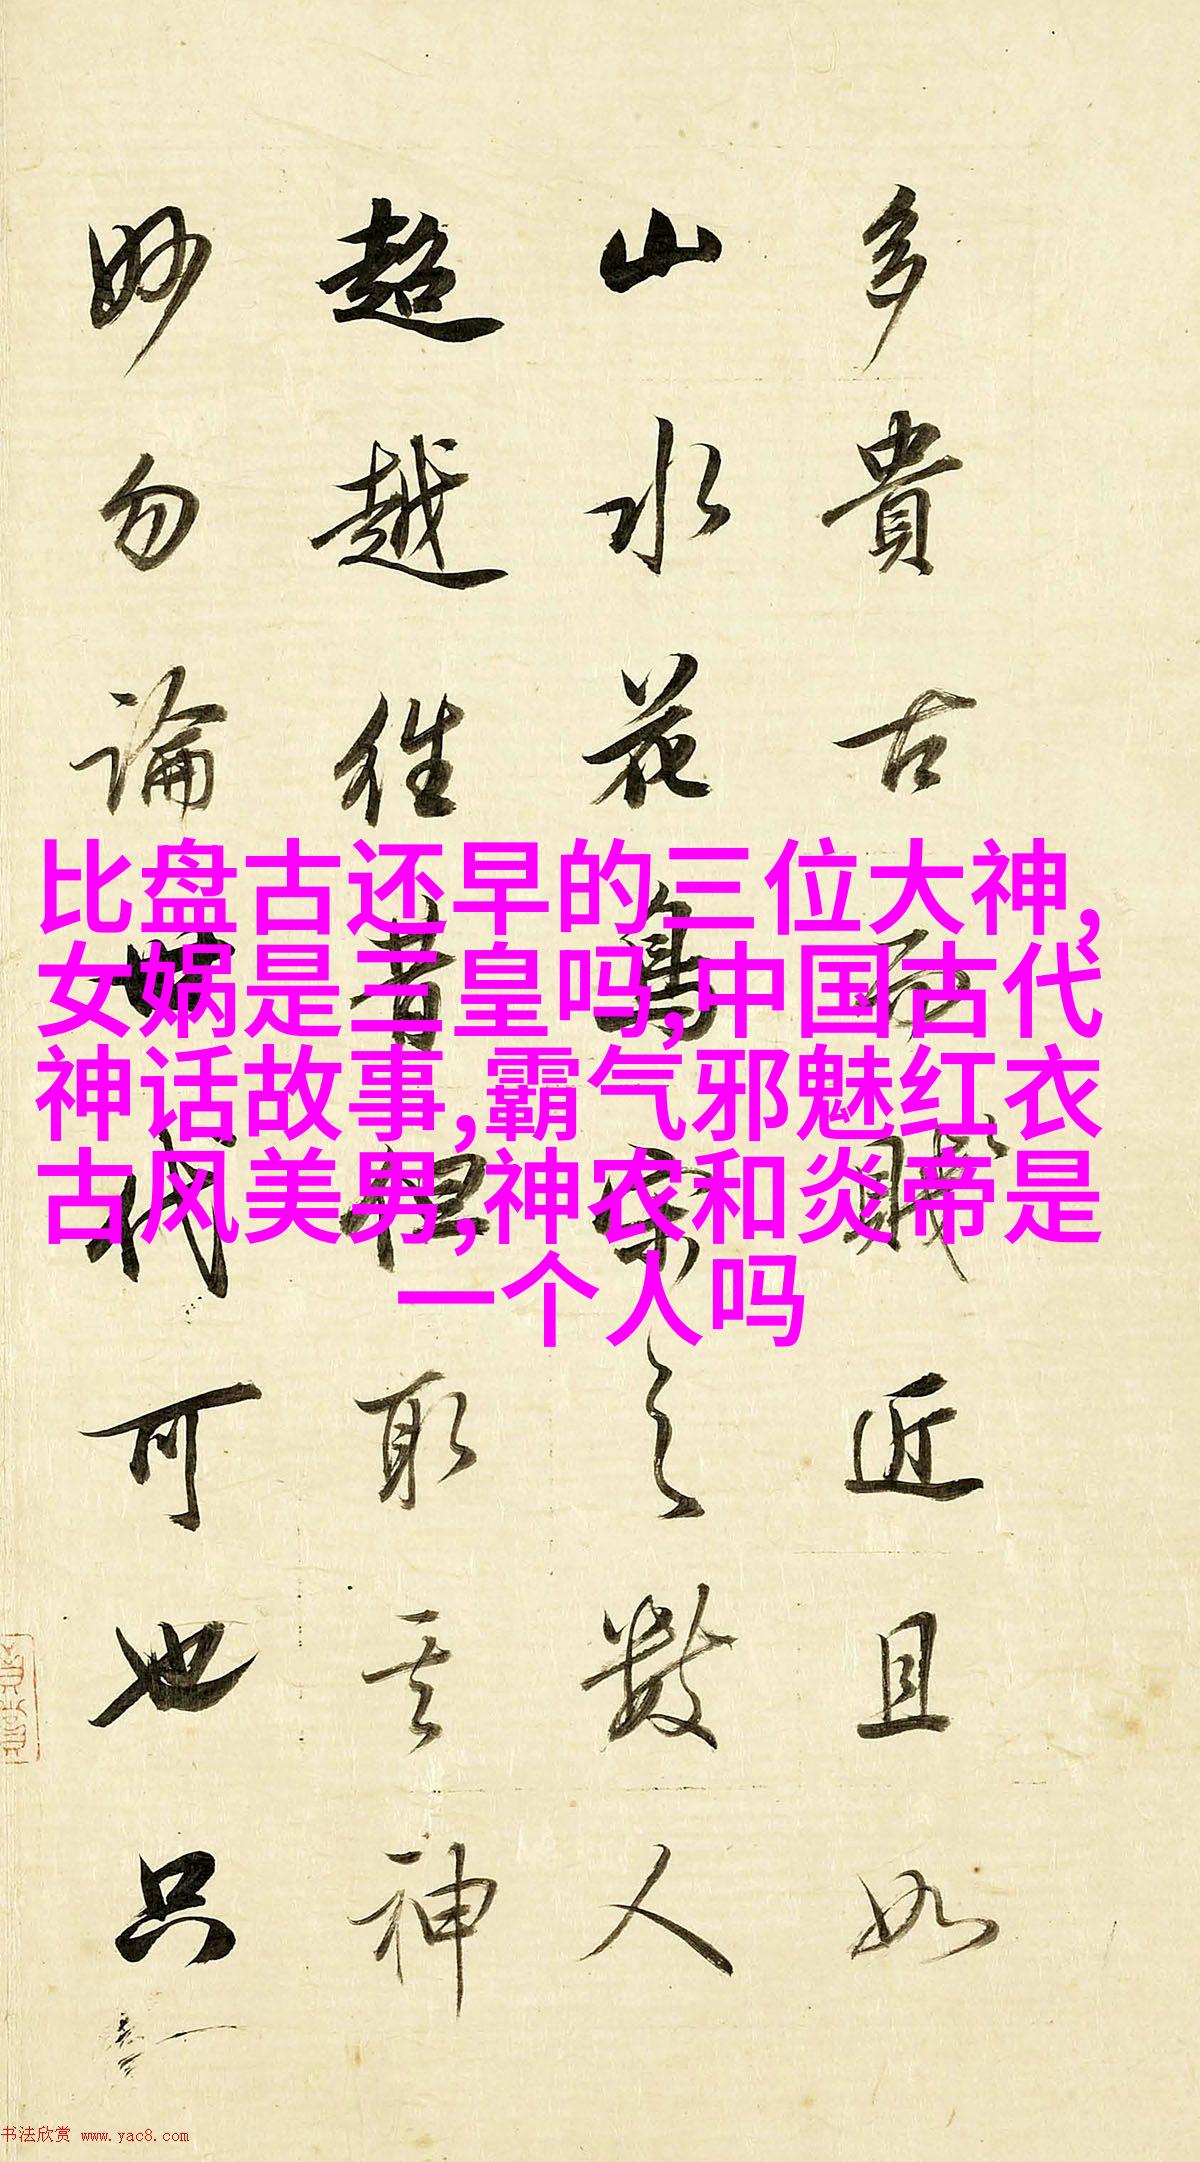 多貴古而賤近且如
山水花鳥宋之數人
超越往昔但取其神
妙勿論世代可也只
比盘古还早的三位大神,
女娲是三皇吗,中国古代
神话故事,霸气邪魅红衣
古风美男,神农和炎帝是
一个人吗
书法欣赏 www.yac8.com